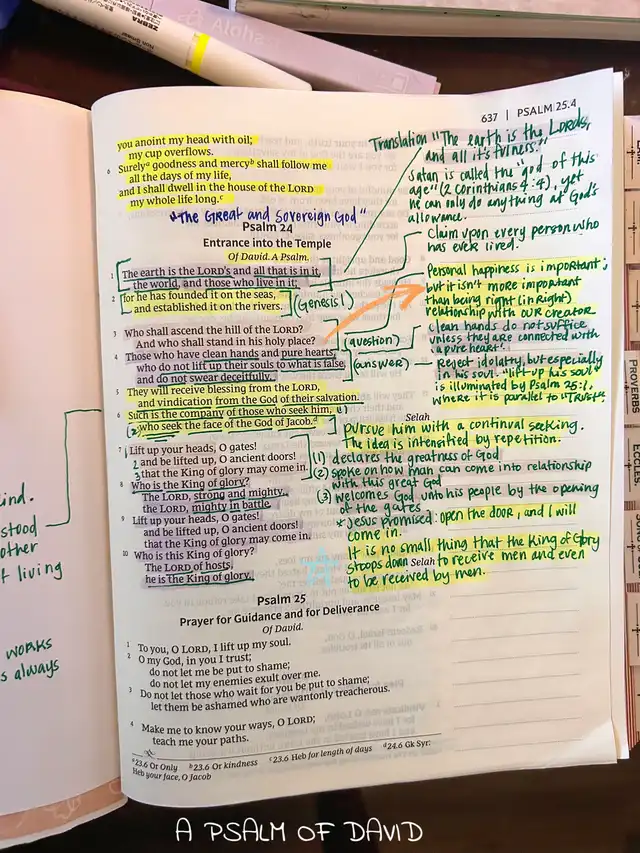 ZEBRA
Aloha
637 | PSALM 25.4
you anoint my head with oil;
my cup overflows.
6 Surelyᵃ goodness and mercyᵇ shall follow me
all the days of my life,
and I shall dwell in the house of the LORD
my whole life long.ᶜ
"The GReat and Sovereign God"
Psalm 24
Entrance into the Temple
Of David. A Psalm.
1 The earth is the LORD's and all that is in it,
the world, and those who live in it;
2 for he has founded it on the seas,
and established it on the rivers.
(Genesis 1)
3 Who shall ascend the hill of the LORD?
And who shall stand in his holy place?
(question)
4 Those who have clean hands and pure hearts,
who do not lift up their souls to what is false,
and do not swear deceitfully.
(answer)
5 They will receive blessing from the LORD,
and vindication from the God of their salvation.
6 Such is the company of those who seek him, 1)
(2) who seek the face of the God of Jacob.ᵈ
Selah
7 1 Lift up your heads, O gates!
2 and be lifted up, O ancient doors!
3 that the King of glory may come in.
8 Who is the King of glory?
The LORD, strong and mighty,
the LORD, mighty in battle.
9 Lift up your heads, O gates!
and be lifted up, O ancient doors!
that the King of glory may come in.
10 Who is this King of glory?
The LORD of hosts,
he is the King of glory.
Selah
Psalm 25
Prayer for Guidance and for Deliverance
Of David.
1 To you, O LORD, I lift up my soul.
2 O my God, in you I trust;
do not let me be put to shame;
do not let my enemies exult over me.
3 Do not let those who wait for you be put to shame;
let them be ashamed who are wantonly treacherous.
4 Make me to know your ways, O LORD;
teach me your paths.
ᵃ23.6 Or Only ᵇ23.6 Or kindness ᶜ23.6 Heb for length of days ᵈ24.6 Gk Syr:
Heb your face, O Jacob
Translation "The earth is the Lords,
and all it's fulness."
Satan is called the "god of this
age" (2 Corinthians 4:4), yet
he can only do anything at God's
allowance.
Claim upon every person who
has ever lived.
Personal happiness is important;
but it isn't more important
than being right (in Right)
relationship with our creator
Clean hands do not suffice
unless they are connected with
"a pure heart".
Reject idolatry, but especially
in his soul. "lift up his soul"
is illuminated by Psalm 25:1,
where it is parallel to "Trust".
Pursue him with a continual seeking.
The idea is intensified by repetition.
(1) declares the greatness of God
(2) spoke on how man can come into relationship
with this great God
(3) welcomes God unto his people by the opening
of the gates
* Jesus promised: open the door, and I will
come in.
It is no small thing that the King of Glory
stoops down to receive men and even
to be received by men.
ind.
stood
other
t living
works
s always
PROVERBS
ECCLES
A PSALM OF DAVID